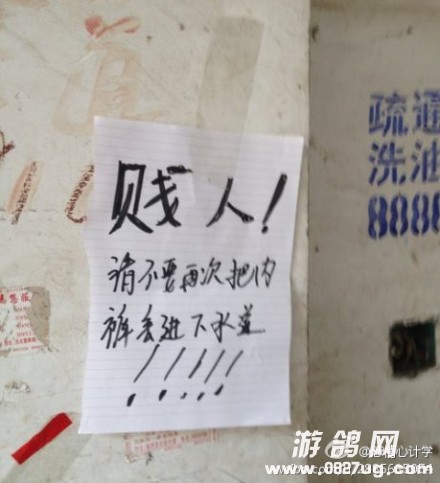 贱人!
请不要再次把内
裤丢进下水道
!!!!!
疏通
洗油
8888
游鸽网
www.0827ug.com